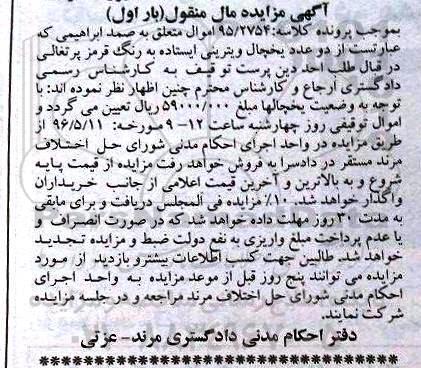 آگهی مزایده مال منقول(بار اول)
بموجب پرونده کلاسه:۹۵/۲۷۵۴ اموال متعلق به صمد ابراهیمی که
عبارتست از دو عدد یخچال ویترینی ایستاده به رنگ قرمز پرتغالی
در قبال طلب احد دین پرست توقیف به کارشناس رسمی
دادگستری ارجاع و کارشناس محترم چنین اظهار نظر نموده اند: با
توجه به وضعیت یخچالها مبلغ ۵۹۰۰۰/۰۰۰ ریال تعیین می گردد و
اموال توقیفی روز چهارشنبه ساعت ۱۲- ۹ مورخه: ۹۶/۵/۱۱ از
طریق مزایده در واحد اجرای احکام مدنی شورای حل اختلاف
مرند مستقر در دادسرا به فروش خواهد رفت مزایده از قیمت پایه
شروع و به بالاترین و آخرین قیمت اعلامی از جانب خریداران
واگذار خواهد شد. ۱۰٪ مزایده فی المجلس دریافت و برای مابقی
به مدت ۳۰ روز مهلت داده خواهد شد که در صورت انصراف و
یا عدم پرداخت مبلغ واریزی به نفع دولت ضبط و مزایده تجدید
خواهد شد. طالبین جهت کسب اطلاعات بیشترو بازدید از مورد
مزایده می توانند پنج روز قبل از موعد مزایده به واحد اجرای
احکام مدنی شورای حل اختلاف مرند مراجعه و در جلسه مزایده
شرکت نمایند.
دفتر احکام مدنی دادگستری مرند- عزتی